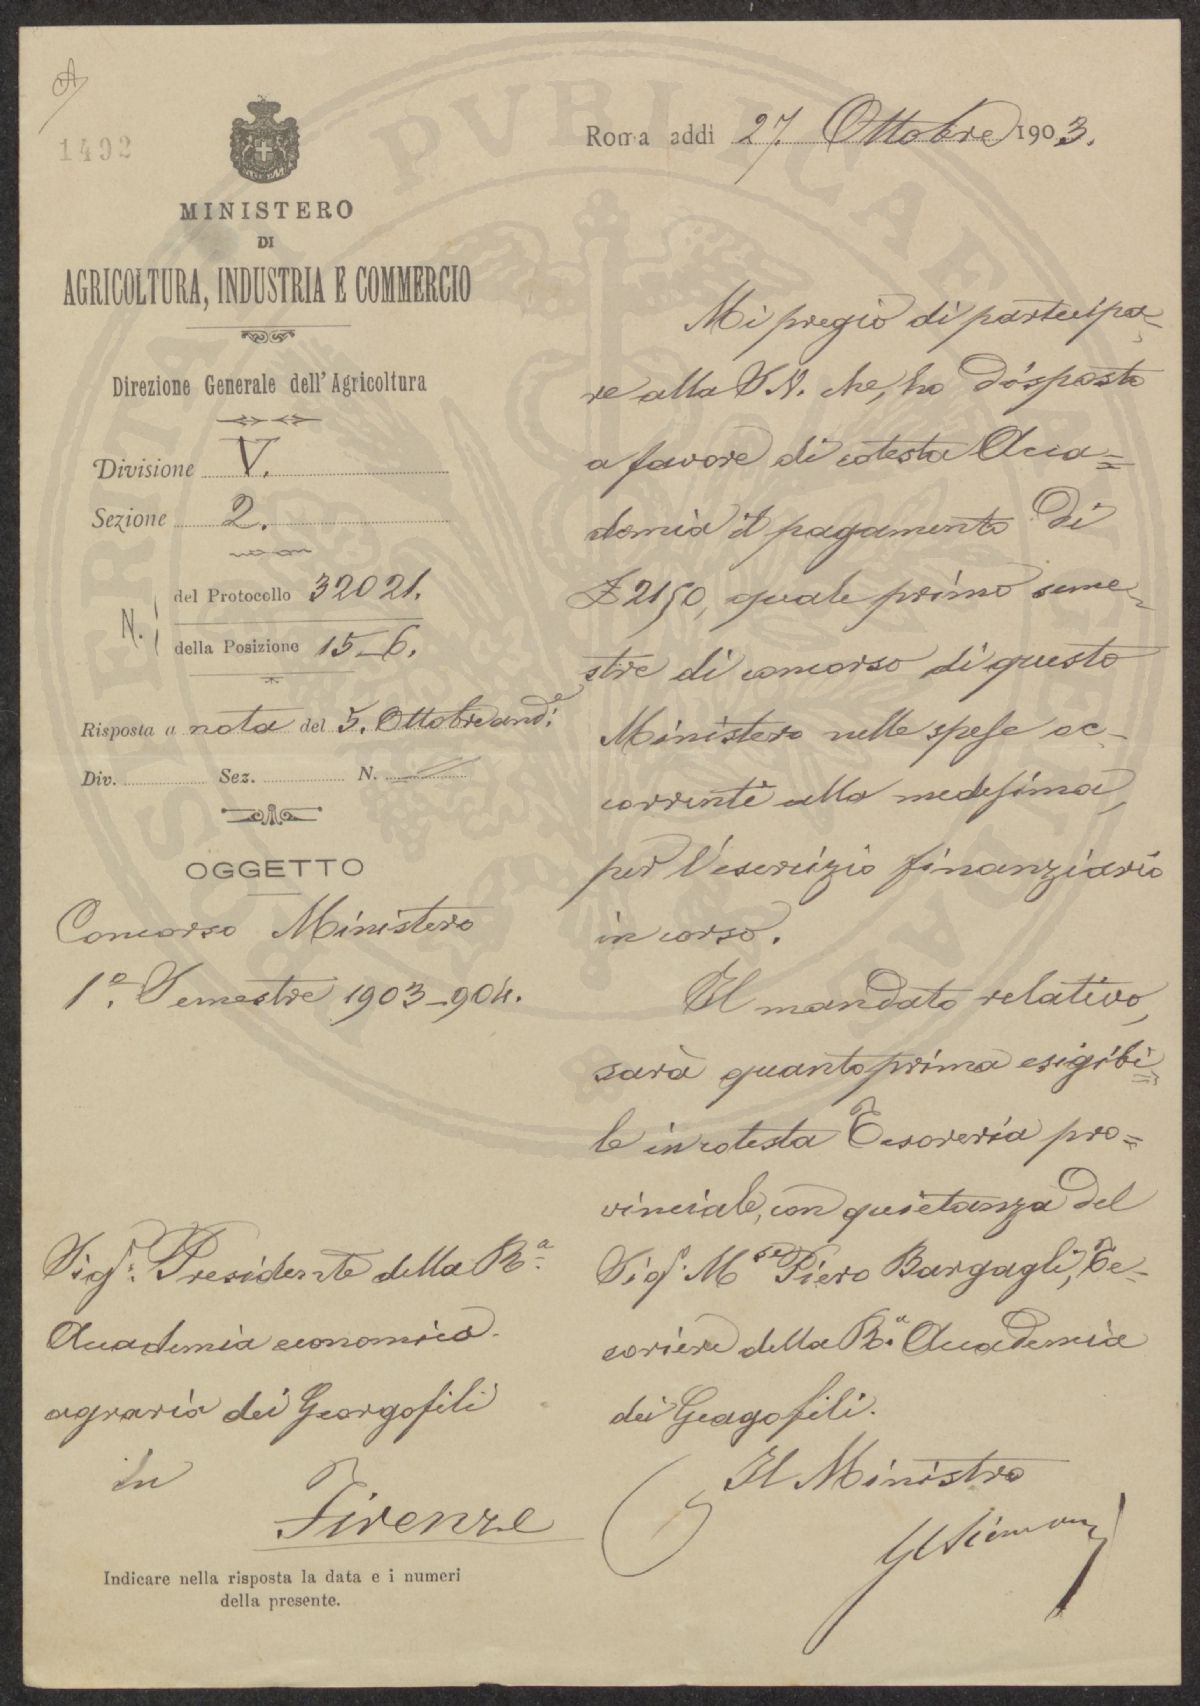 A
1492
MINISTERO
DI
AGRICOLTURA, INDUSTRIA E COMMERCIO
Direzione Generale dell'Agricoltura
Divisione V.
Sezione 2.
N. del Protocollo 32021.
della Posizione 15-6.
Risposta a nota del 5. Ottobre and.e
Div. Sez. N.
OGGETTO
Concorso Ministero
1.o Semestre 1903-904.
Sig.r Presidente della R.a
Accademia economico-
agraria dei Georgofili
in
Firenze
Indicare nella risposta la data e i numeri
della presente.
Roma addì 27. Ottobre 1903.
Mi pregio di partecipa-
re alla S.V. che, ho disposto
a favore di cotesta Acca=
demia il pagamento di
£ 2150, quale primo seme-
stre di concorso di questo
Ministero nelle spese oc-
correnti alla medesima,
per l'esercizio finanziario
in corso.
Il mandato relativo,
sarà quanto prima esigibi=
le in cotesta Tesoreria pro=
vinciale, con quietanza del
Sig.r M.se Piero Bargagli, Te-
soriere della R.a Accademia
dei Geogofili.
Il Ministro